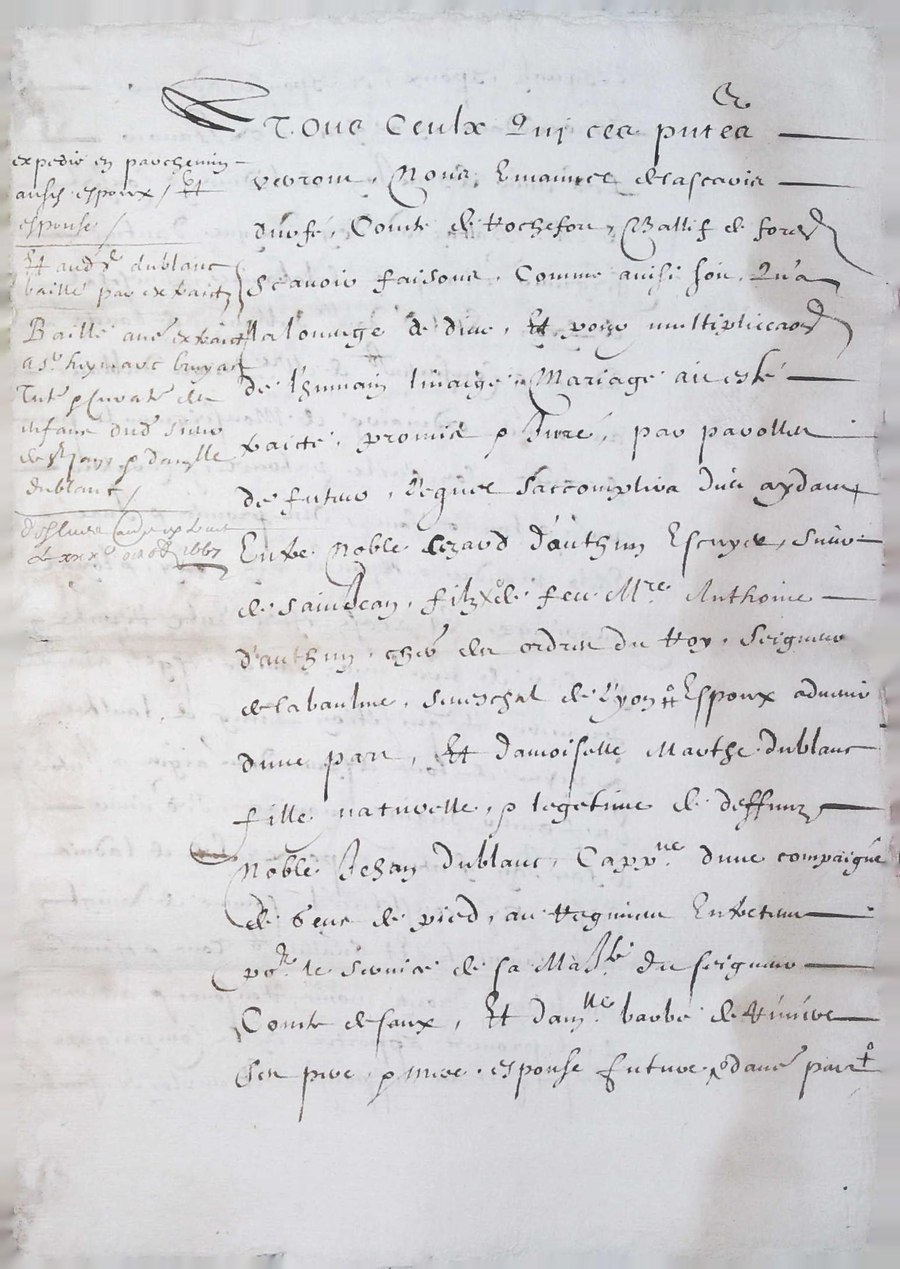 A Tous Ceulx Quj ces pntes
verront, Nous Emanuel de Lascaris
durfé, Comte de Rochefort, Ballif de forestz
Scavoir faisons, Comme ainsi soit, Qu'a
la louange de dieu, Et pour multiplicaon
de l'humain linaige Mariage ait esté
traicté, promis & Juré, par parolles
de futur, Lequel s'accomplira dieu aydant
Entre Noble Cezard d'authun Escuyer, Sieur
de Saint Jean, filz de feu Mre Anthoine
d'authun, cher des ordres du Roy, Seigneur
de la baulme, seneschal de Lyon Espoux advenir
dune part, Et damoiselle Marthe dublanc
fille naturelle, & legetime de deffunz
Noble Jehan dublanc, Cappne dune compaigne
de gens de pied, au Regiment Entretenu
por le service de sa Maste du seigneur
Comte de saux, Et damlle barbe de
ses pere & mere, esponse future dautre part
expedié en parchemin
ausds espoux, Et
esponse
Et aud Sr dublanc
baillé par extraict
Baillé autre extraict
a Sr heymarc bruyas
Tutr & Curater des
enfans dud Sieur
de St Jean & damlle
dublanc
1667